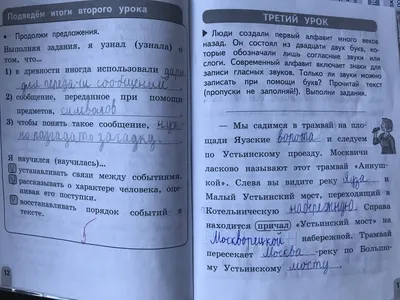 Подведём итоги второго урока
• Продолжи предложения.
Выполняя задания, я узнал (узнала) о
том, что...
1) в древности иногда использовали дары
для передачи сообщений
2) сообщение, переданное при помощи
предметов, символов
3) чтобы понять такое сообщение, нужно
разгадать загадку.
Я научился (научилась)...
устанавливать связи между событиями.
рассказывать о характере человека, оце-
нивая его поступки.
восстанавливать порядок событий в
тексте.
12
ТРЕТИЙ УРОК
➤ Люди создали первый алфавит много веков
назад. Он состоял из двадцати двух букв, ко-
торые обозначали лишь согласные звуки или
слоги. Современный алфавит включает знаки для
записи гласных звуков. Только ли звуки можно
записать при помощи букв? Прочитай текст
(пропуски не заполняй!). Выполни задания.
— Мы садимся в трамвай на пло-
щади Яузские ворота и следуем
по Устьинскому проезду. Москвичи
ласково называют этот трамвай «Аннуш-
кой». Слева вы видите реку Яуза и
Малый Устьинский мост, переходящий в
Котельническую набережную. Справа
находится причал «Устьинский мост» на
Москворецкой набережной. Трамвай
пересекает Москва-реку по Большо-
му Устьинскому мосту.